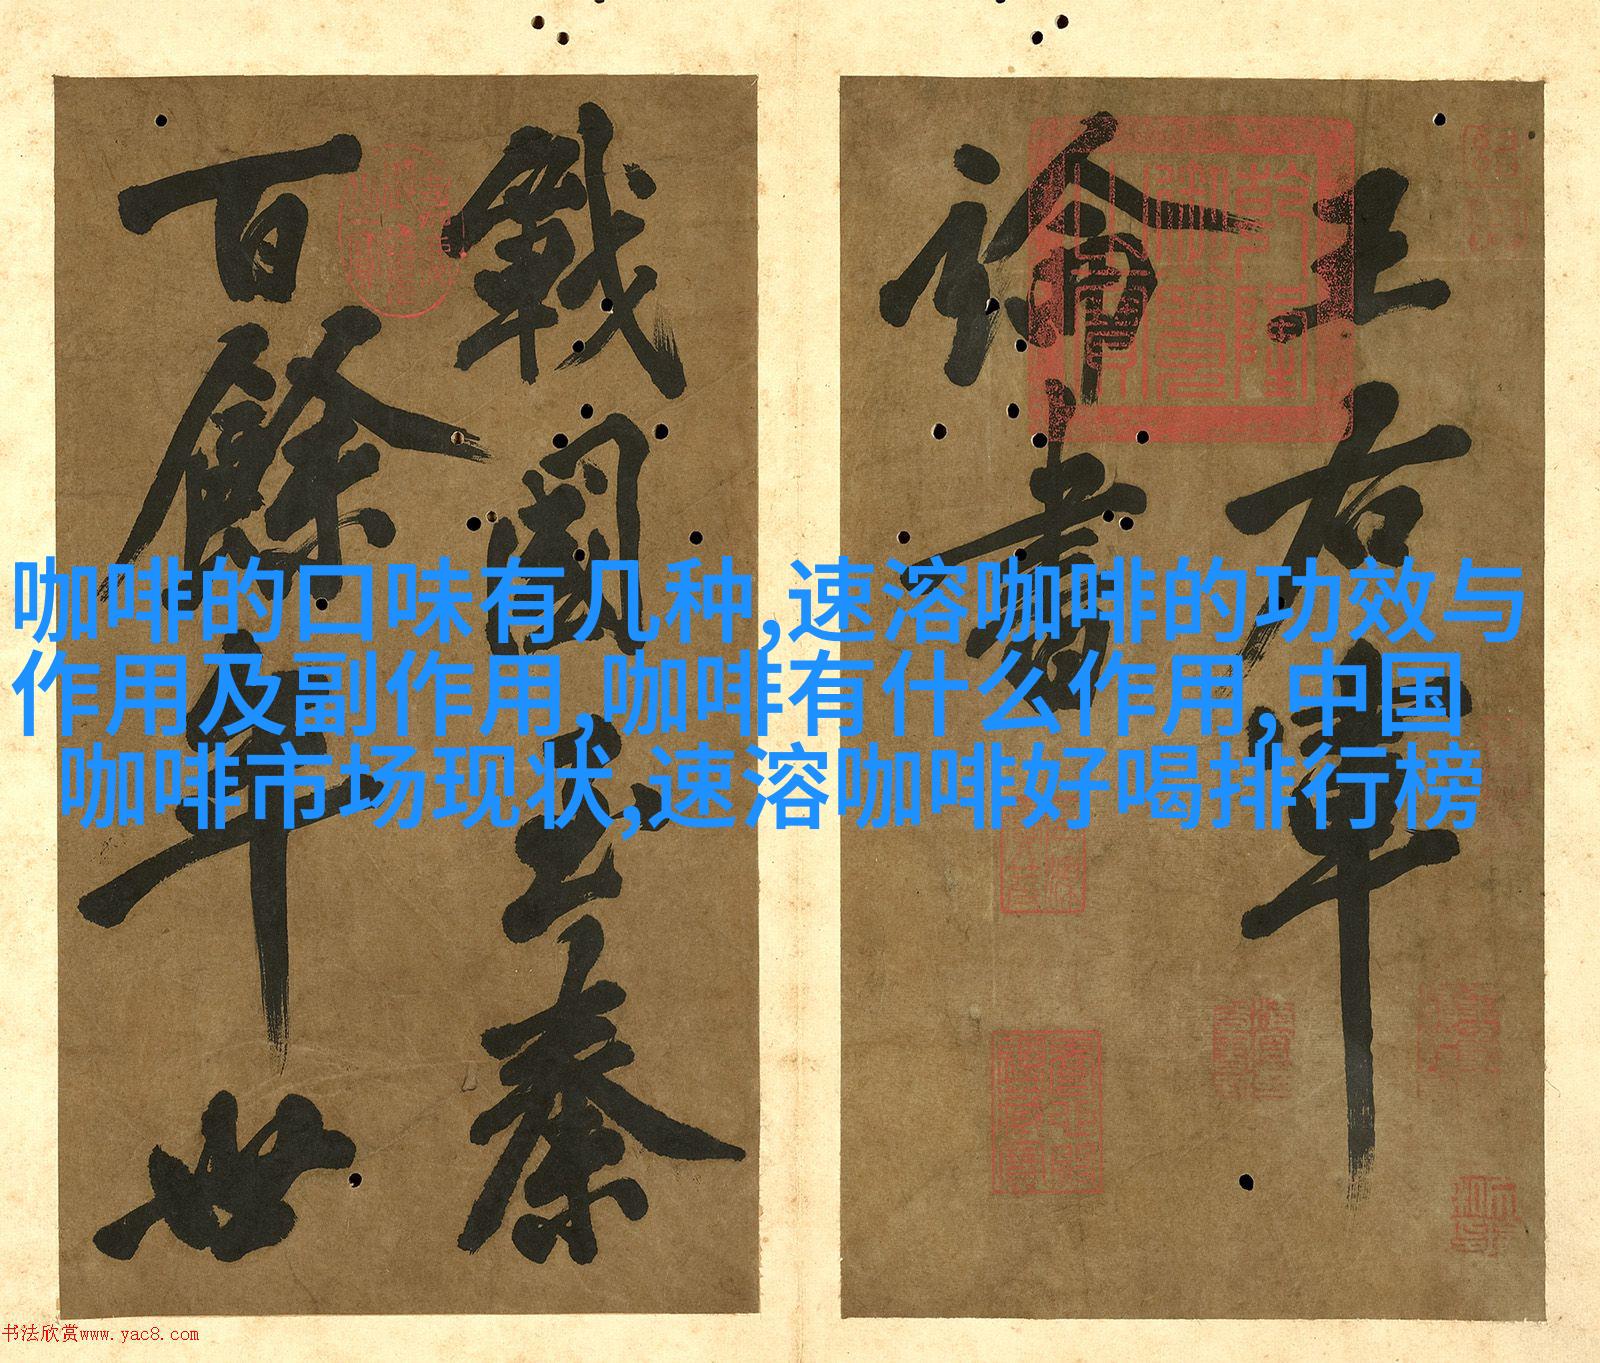 王右軍
論書
戰國至秦
百餘年世
乾隆御覽之寶
咖啡的口味有几种,速溶咖啡的功效与
作用及副作用,咖啡有什么作用,中国
咖啡市场现状,速溶咖啡好喝排行榜
书法欣赏www.yac8.com